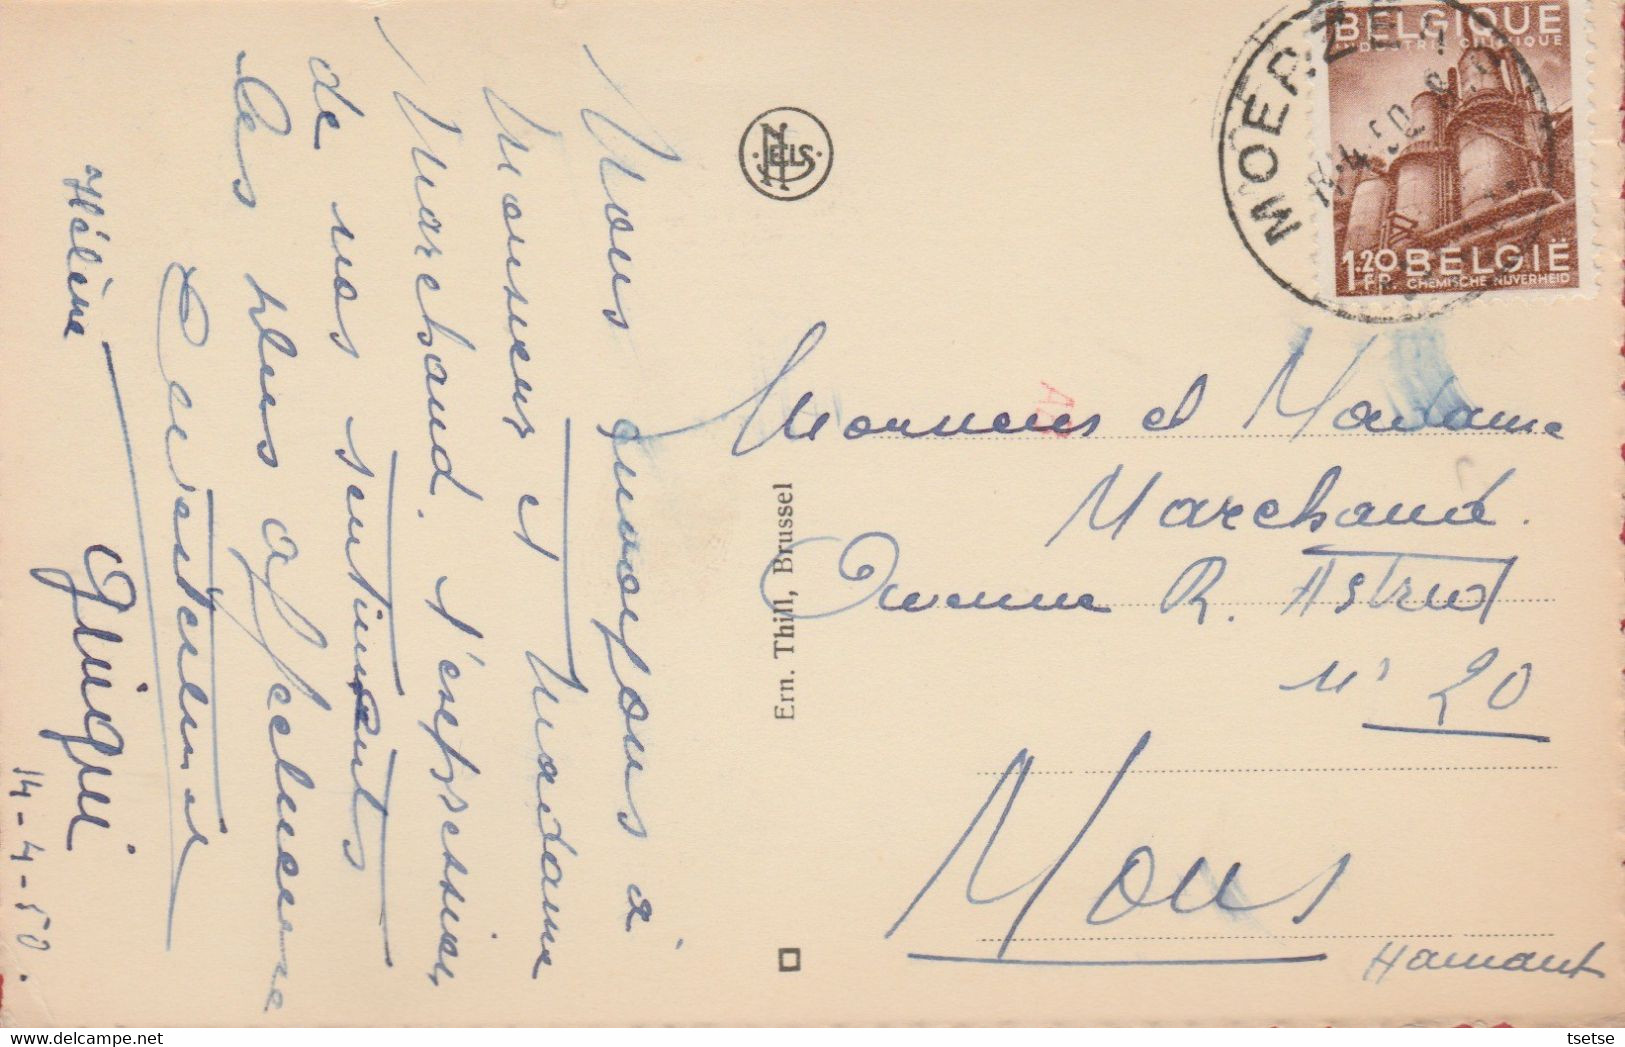 Nous envoyons à
Monsieur et Madame
Marchand. l'expression
de nos sentiments
les plus affectueux
Hélène
14-4-50.
NELS
Ern. Thill, Brussel
BELGIQUE
INDUSTRIE CHIMIQUE
1.20 FR. BELGIË
CHEMISCHE NIJVERHEID
MOERZEKE
Monsieur et Madame
Marchand.
Avenue R. Astrid
N° 20
Mons
Hainaut
tsetse